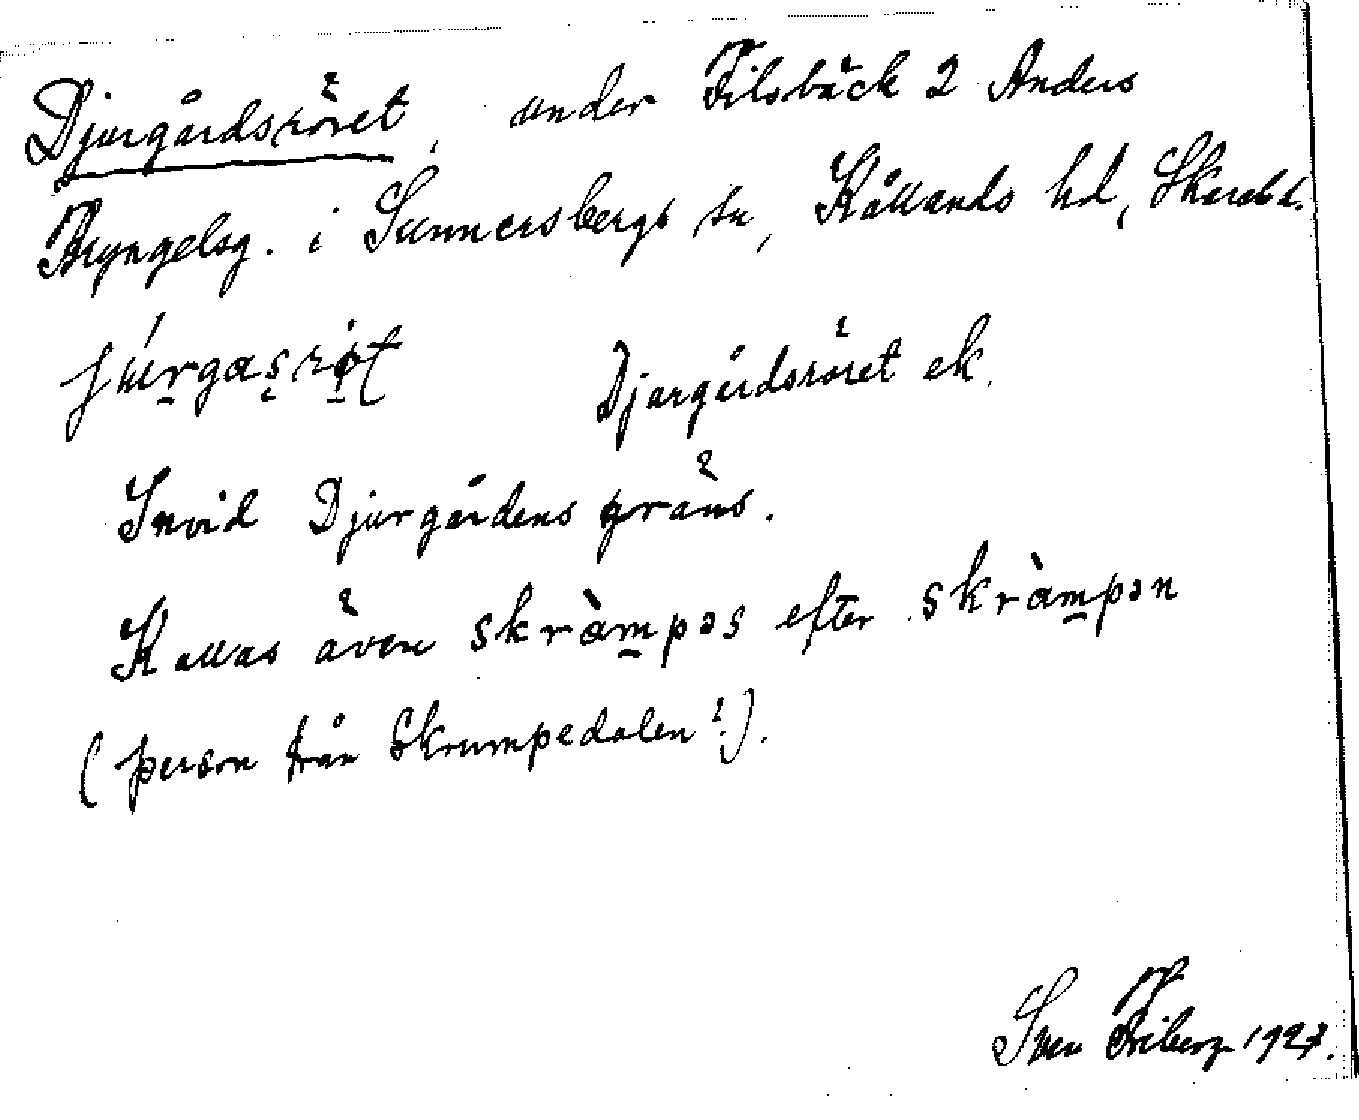 Djurgårdsröret, under Filsbäck 2 Anders
Bryngelsg. i Sunnersbergs sn, Kållands hd, Skarab.l.
júrgasrøt Djurgårdsröret ek.
Invid Djurgårdens gräns.
Kallas även skràmpəs efter skràmpən
(person från Skrumpedalen?).
Sven Friberg 1927.